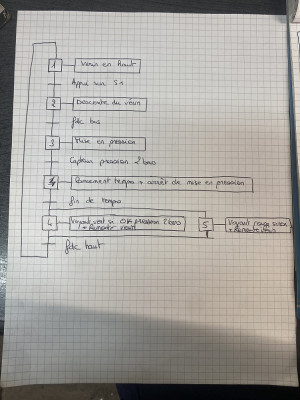 1 Verin en haut
Appui sur S1
2 Descente du verin
fdc bas
3 Mise en pression
Capteur pression 2 bars
4 tempo + arrêt de mise en pression
fin de tempo
4 Voyant vert si pression 2 bars 5 Voyant rouge sinon
+ Remonter verin + Remonter verin
fdc haut